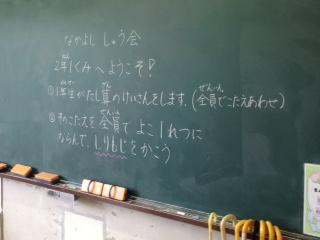 なかよし しゅう会
2年1くみへようこそ!
①1年生がたし算のけいさんをします。(全員でこたえあわせ)
②そのこたえを全員でよこ1れつに
ならんで、しりもじをかこう